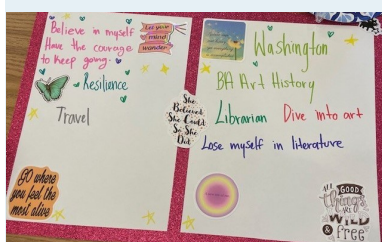 Believe in myself
Have the courage
to keep going.
Resilience
Travel
Let your
mind
wander
GO where
you feel the
most alive
She
Believed
She Could
So She
Did
Washington
BA Art History
Librarian Dive into art
Lose myself in literature
ALL GOOD
things
ARE
WILD
& FREE